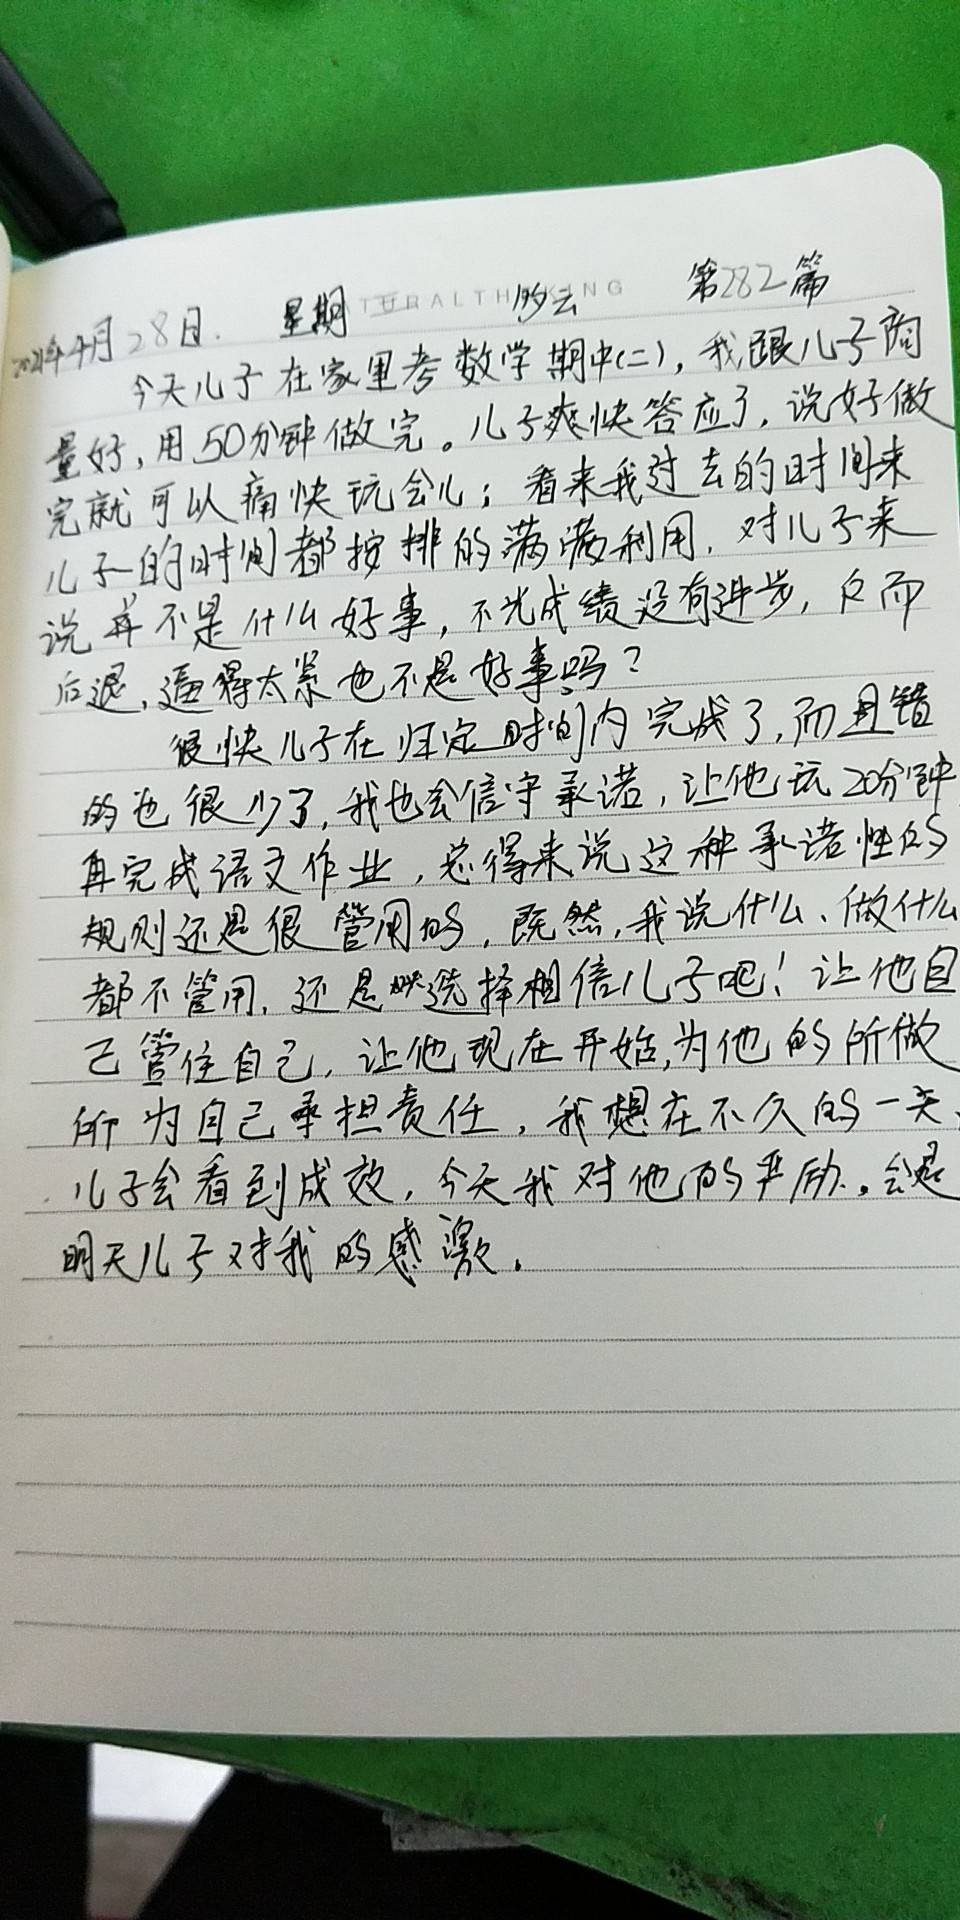 2021年4月28日. 星期三 多云 第282篇
今天儿子在家里考数学期中(二),我跟儿子商
量好,用50分钟做完。儿子爽快答应了,说好做
完就可以痛快玩会儿;看来我过去的时间来
儿子的时间都按排的满满利用,对儿子来
说并不是什么好事,不光成绩没有进步,反而
后退,逼得太紧也不是好事吗?
很快儿子在归定时间内完成了,而且错
的也很少了,我也会信守承诺,让他玩20分钟
再完成语文作业,总得来说这种承诺性的
规则还是很管用的,既然,我说什么、做什么
都不管用,还是选择相信儿子吧!让他自
己管住自己,让他现在开始,为他的所做
所为自己承担责任,我想在不久的一天,
儿子会看到成效,今天我对他的严励。会是
明天儿子对我的感激.